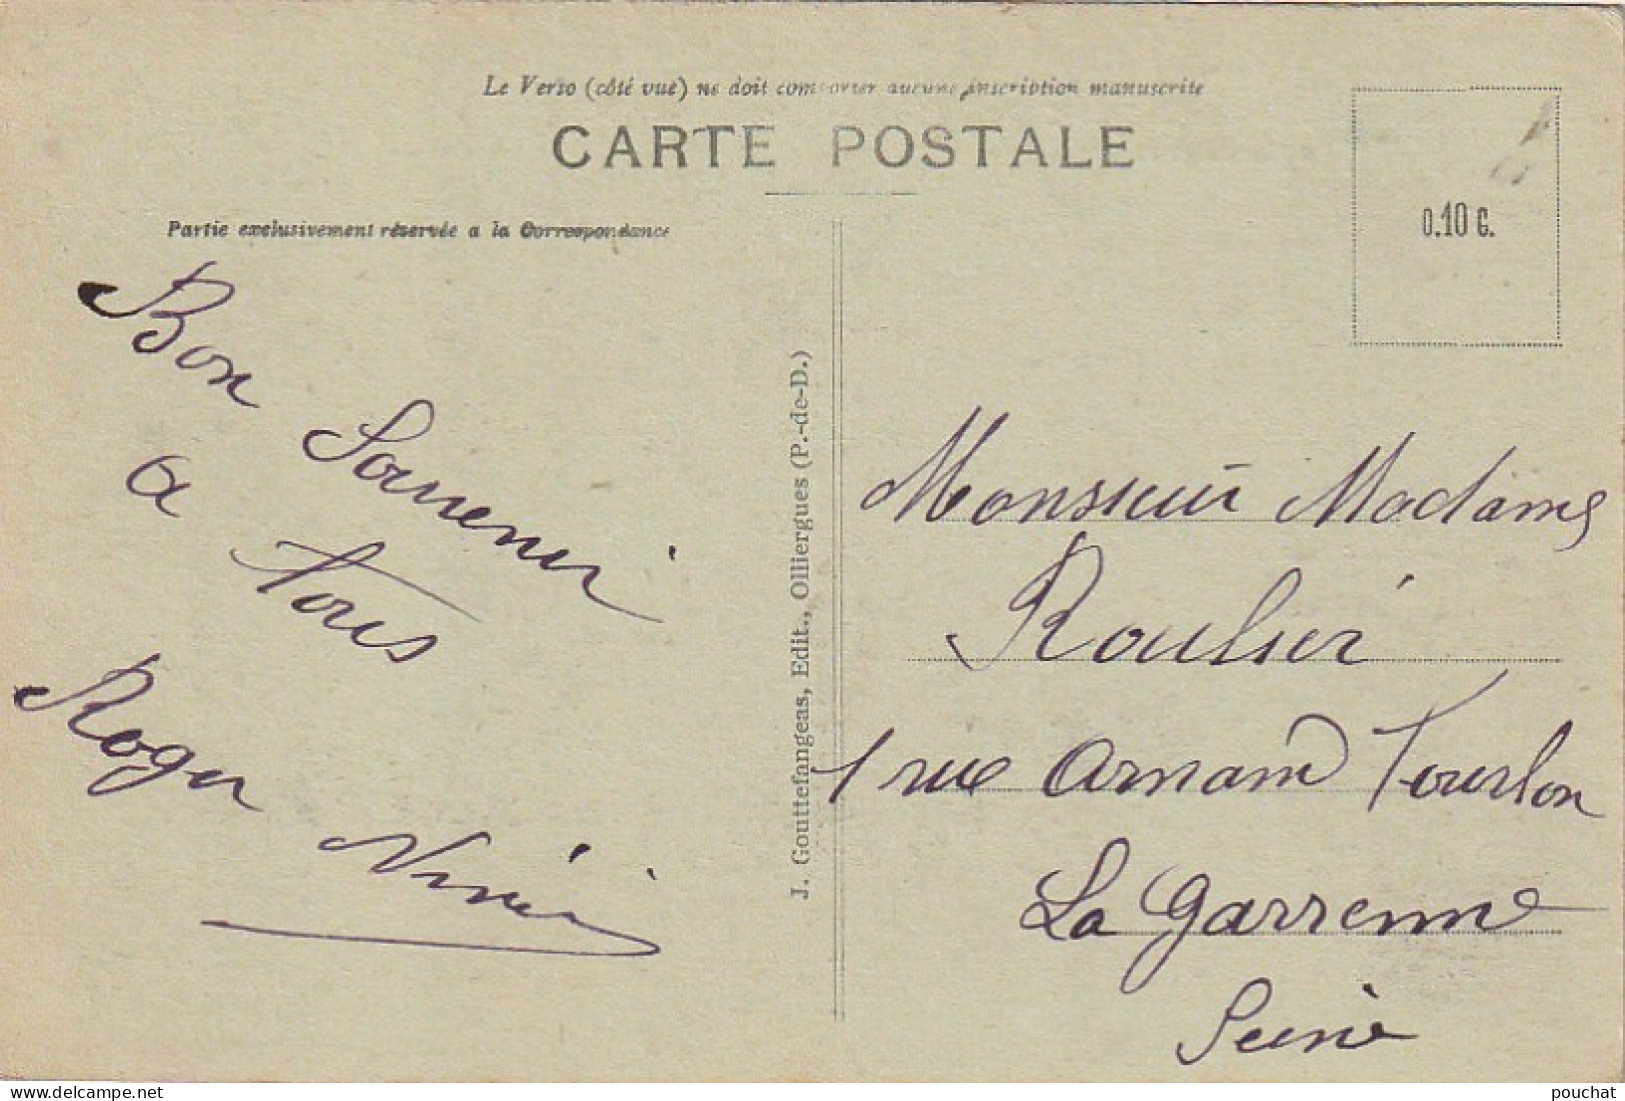 Le Verso (côté vue) ne doit comporter aucune inscription manuscrite
CARTE POSTALE
0.10 C.
Partie exclusivement réservée a la Correspondance
Bon Souvenir
a tous
Roger
J. Gouttefangeas, Edit., Olliergues (P.-de-D.)
Monsieur Madame
Roulier
1 rue Armand Tourlon
La Garrenne
Seine
delcampe.net
pouchat